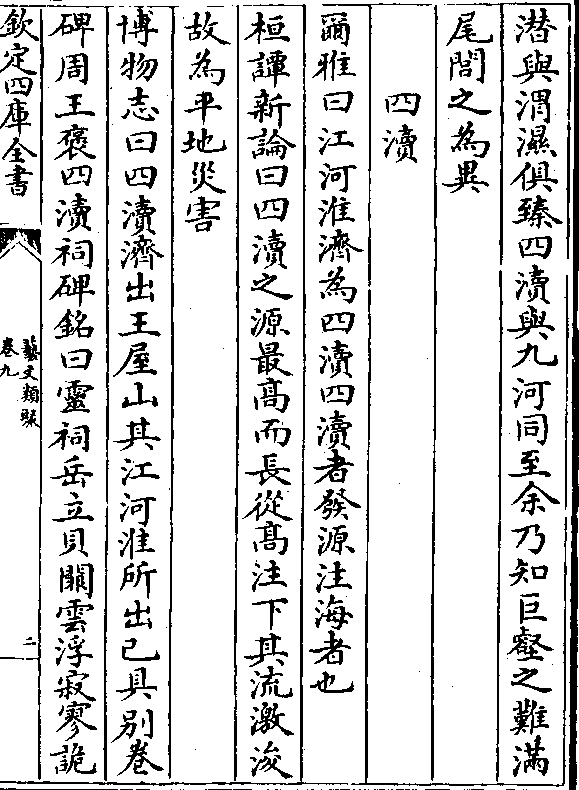 潛與渭濕俱臻四瀆與九河同至余乃知巨壑之難滿
尾閭之為異
四瀆
爾雅曰江河淮濟為四瀆四瀆者發源注海者也
桓譚新論曰四瀆之源最髙而長從髙注下其流激浚
故為平地災害
博物志曰四瀆濟出王屋山其江河淮所出已具别卷
碑周王褒四瀆祠碑銘曰靈祠岳立貝闕雲浮寂寥詭
欽定四庫全書
藝文類聚
卷九
二